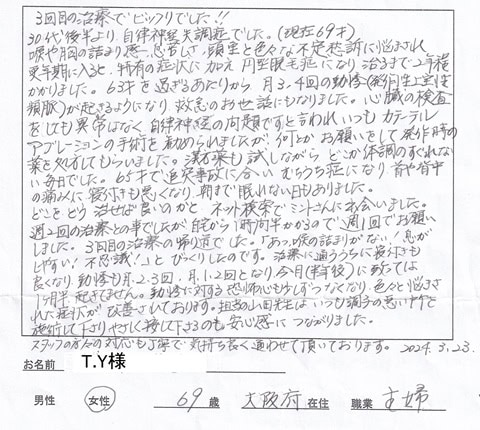 3回目の治療でビックリでした!!
30代後半より、自律神経失調症でした。(現在69才)
喉や胸の詰まり感、息苦しさ、頭重と色々な不定愁訴に悩まされ
更年期に入ると、特有の症状に加え円型脱毛症になり治るまで2年程
かかりました。63才を過ぎるあたりから月3.4回の動悸(発作性上室性
頻脈)が起きるようになり救急のお世話にもなりました。心臓の検査
をしても異常はなく自律神経の問題ですと言われいつもカテーテル
アブレーションの手術を勧められましたが、何とかお願いをして発作時の
薬を処してもらいました。漢方薬も試しながらどこか体調のすぐれな
い毎日でした。65才で追突事故に合いむちうち症になり首や背中
の痛みに寝付きも悪くなり朝まで眠れない日もありました。
どこをどう治せば良いのかとネット検索でミントさんに出会いました。
週2回の治療との事でしたが自宅から1時間半かかるので週1回でお願い
しました。3回目の治療の帰り道でした。「あっ、喉の詰まりがない!息が
しやすい!不思議!」とびっくりしたのです。治療に通ううちに寝付きも
良くなり動悸も月2.3回、月1.2回となり今月(半年後)に致っては
1ヶ月半起きてません。動悸に対する恐怖心も少しずつなくなり、色々と悩まさ
れた症状が改善されております。担当の山田先生はいつも調子の悪い所を
施術して下さりやさしく接して下さるのも安心感につながりました。
スタッフの方々の対応も丁寧で気持ち良く通わせて頂いております。2024.3.23.
お名前 T.Y様
男性 女性 69歳 大阪府在住 職業 主婦